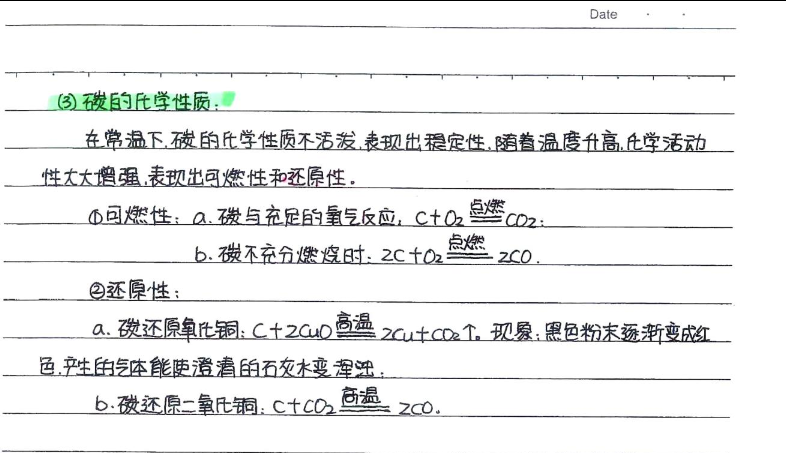 Date · ·
(3)碳的化学性质:
在常温下,碳的化学性质不活泼,表现出稳定性,随着温度升高,化学活动
性大大增强,表现出可燃性和还原性。
①可燃性:a.碳与充足的氧气反应:C+O₂ 点燃 CO₂;
b.碳不充分燃烧时:2C+O₂ 点燃 2CO.
②还原性:
a.碳还原氧化铜:C+2CuO 高温 2Cu+CO₂↑。现象:黑色粉末逐渐变成红
色,产生的气体能使澄清的石灰水变浑浊;
b.碳还原二氧化铜:C+CO₂ 高温 2CO.